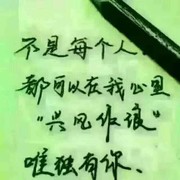 不是每个人.
都可以在我心里
“兴风作浪”
唯独有你.